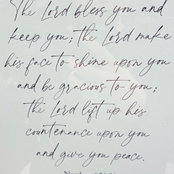 The Lord bless you and
keep you; the Lord make
his face to shine upon you
and be gracious to you;
the Lord lift up his
countenance upon you
and give you peace.